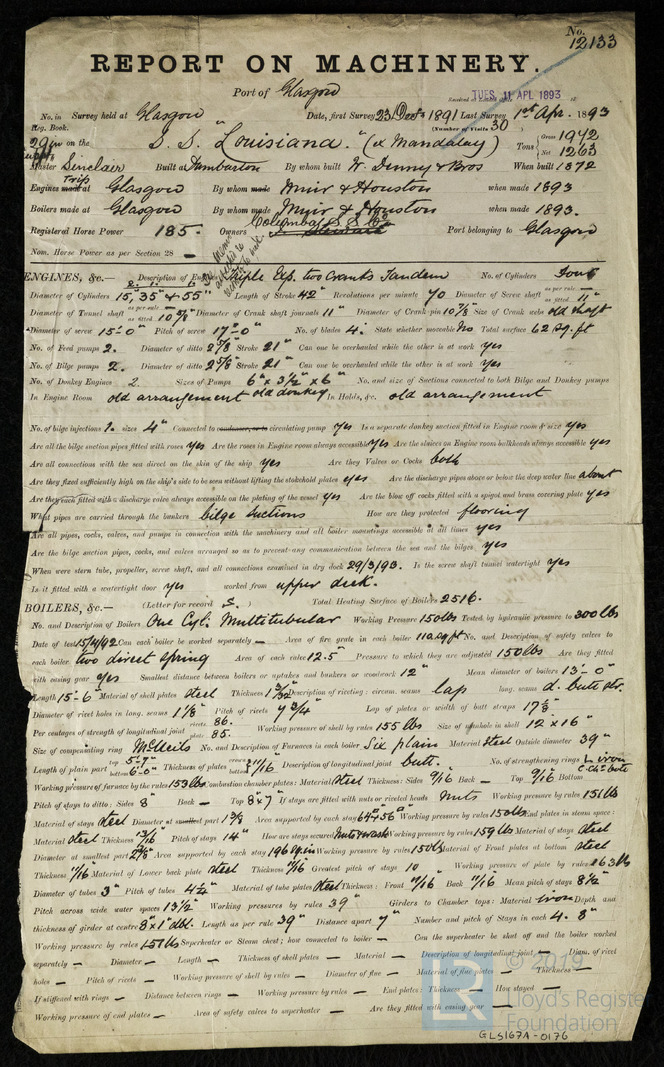 No. 12133
REPORT ON MACHINERY.
Port of Glasgow
TUES. 11 APL 1893
No. in Survey held at Glasgow Date, first Survey 23 Oct 1891 Last Survey 1st Apr. 1893
Reg. Book. (Number of Visits 30)
on the S. S. "Louisiana." (ex Mandalay) Tons Gross 1942 Net 1263
Master Sinclair Built at Dumbarton By whom built W. Denny & Bros When built 1872
Engines made at Glasgow By whom made Muir & Houston when made 1893
Boilers made at Glasgow By whom made Muir & Houston when made 1893.
Registered Horse Power 185. Owners Columba S. S. Co Port belonging to Glasgow
Nom. Horse Power as per Section 28 —
ENGINES, &c.— Description of Engines Triple Exp. two cranks Tandem No. of Cylinders Four
Diameter of Cylinders 15, 35" & 55" Length of Stroke 42" Revolutions per minute 70 Diameter of Screw shaft as per rule — as fitted 11"
Diameter of Tunnel shaft as per rule — as fitted 10 5/8 Diameter of Crank shaft journals 11" Diameter of Crank pin 10 7/8 Size of Crank webs old shaft
Diameter of screw 15-0" Pitch of screw 17-0" No. of blades 4. State whether moveable No Total surface 62 sq. ft
No. of Feed pumps 2. Diameter of ditto 2 5/8 Stroke 21" Can one be overhauled while the other is at work yes
No. of Bilge pumps 2. Diameter of ditto 2 5/8 Stroke 21" Can one be overhauled while the other is at work yes
No. of Donkey Engines 2 Sizes of Pumps 6" x 3 1/2" x 6" No. and size of Suctions connected to both Bilge and Donkey pumps
In Engine Room old arrangement old donkey In Holds, &c. old arrangement
No. of bilge injections 1. sizes 4" Connected to condenser, or to circulating pump yes Is a separate donkey suction fitted in Engine room & size yes
Are all the bilge suction pipes fitted with roses yes Are the roses in Engine room always accessible yes Are the sluices on Engine room bulkheads always accessible yes
Are all connections with the sea direct on the skin of the ship yes Are they Valves or Cocks both
Are they fixed sufficiently high on the ship's side to be seen without lifting the stokehold plates yes Are the discharge pipes above or below the deep water line above
Are they each fitted with a discharge valve always accessible on the plating of the vessel yes Are the blow off cocks fitted with a spigot and brass covering plate yes
What pipes are carried through the bunkers bilge suctions How are they protected flooring
Are all pipes, cocks, valves, and pumps in connection with the machinery and all boiler mountings accessible at all times yes
Are the bilge suction pipes, cocks, and valves arranged so as to prevent any communication between the sea and the bilges yes
When were stern tube, propeller, screw shaft, and all connections examined in dry dock 29/3/93. Is the screw shaft tunnel watertight yes
Is it fitted with a watertight door yes worked from upper deck.
BOILERS, &c.— (Letter for record S.) Total Heating Surface of Boilers 2516.
No. and Description of Boilers One Cyl: Multitubular Working Pressure 150 lbs Tested by hydraulic pressure to 300 lbs
Date of test 15/11/92 Can each boiler be worked separately — Area of fire grate in each boiler 110 sq ft No. and Description of safety valves to
each boiler two direct spring Area of each valve 12.5" Pressure to which they are adjusted 150 lbs Are they fitted
with easing gear yes Smallest distance between boilers or uptakes and bunkers or woodwork 12" Mean diameter of boilers 13'-0"
Length 15-6" Material of shell plates steel Thickness Description of riveting: circum. seams lap long. seams d. butt str.
Diameter of rivet holes in long. seams 1 1/8 Pitch of rivets 7 3/4" Lap of plates or width of butt straps 17 5/8
Per centages of strength of longitudinal joint rivets 86. plate 85. Working pressure of shell by rules 155 lbs Size of manhole in shell 12 x 16"
Size of compensating ring McNeils No. and Description of Furnaces in each boiler Six plain Material steel Outside diameter 39"
Length of plain part top 5-7" bottom 6-0" Thickness of plates crown bottom 11/16 Description of longitudinal joint butt. No. of strengthening rings
Working pressure of furnace by the rules 153 lbs Combustion chamber plates: Material steel Thickness: Sides 9/16 Back — Top 9/16 Bottom
Pitch of stays to ditto: Sides 8 Back — Top 8 x 7" If stays are fitted with nuts or riveted heads nuts Working pressure by rules 151 lbs
Material of stays steel Diameter at smallest part 1 3/8 Area supported by each stay 64 & 56 Working pressure by rules 150 lbs End plates in steam space:
Material steel Thickness 13/16 Pitch of stays 14" How are stays secured nuts & wash Working pressure by rules 159 lbs Material of stays steel
Diameter at smallest part 2 5/8 Area supported by each stay 196 sq in Working pressure by rules 150 lbs Material of Front plates at bottom steel
Thickness 11/16 Material of Lower back plate steel Thickness 11/16 Greatest pitch of stays 10 Working pressure of plate by rules 163 lb
Diameter of tubes 3" Pitch of tubes 4 1/4" Material of tube plates steel Thickness: Front 11/16 Back 11/16 Mean pitch of stays 8 1/2"
Pitch across wide water spaces 13 1/2" Working pressures by rules 39" Girders to Chamber tops: Material iron Depth and
thickness of girder at centre 8 x 1" dbl. Length as per rule 39" Distance apart 7" Number and pitch of Stays in each 4. 8"
Working pressure by rules 151 lbs Superheater or Steam chest; how connected to boiler — Can the superheater be shut off and the boiler worked
separately — Diameter — Length — Thickness of shell plates — Material — Description of longitudinal joint — Diam. of rivet
holes — Pitch of rivets — Working pressure of shell by rules — Diameter of flue — Material of flue plates — Thickness —
If stiffened with rings — Distance between rings — Working pressure by rules — End plates: Thickness — How stayed —
Working pressure of end plates — Area of safety valves to superheater — Are they fitted with easing gear —
© 2019
Lloyd's Register
Foundation
GLS167A-0176